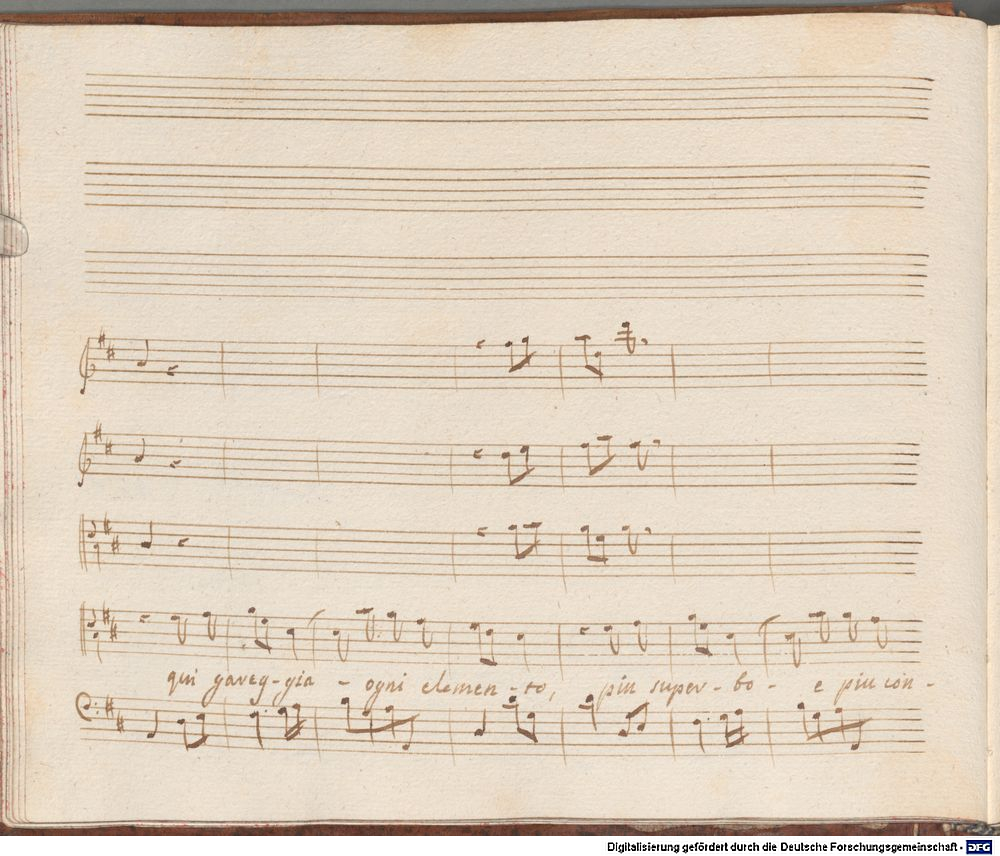 qui gareg-gia - ogni elemen-to, piu super-bo - e piu con-
Digitalisierung gefördert durch die Deutsche Forschungsgemeinschaft - DFG